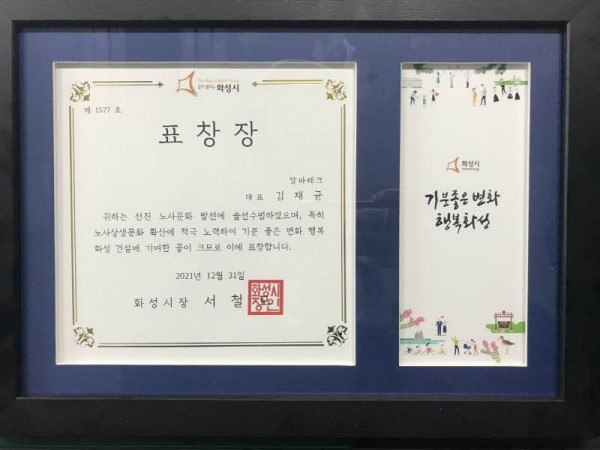 화성시
제 1577 호
표창장
알파테크
대표 김재균
귀하는 선진 노사문화 발전에 솔선수범하였으며, 특히
노사상생문화 확산에 적극 노력하여 기분 좋은 변화 행복
화성 건설에 기여한 공이 크므로 이에 표창합니다.
2021년 12월 31일
화성시장 서철
화성시
장인
화성시
기분좋은 변화
행복화성